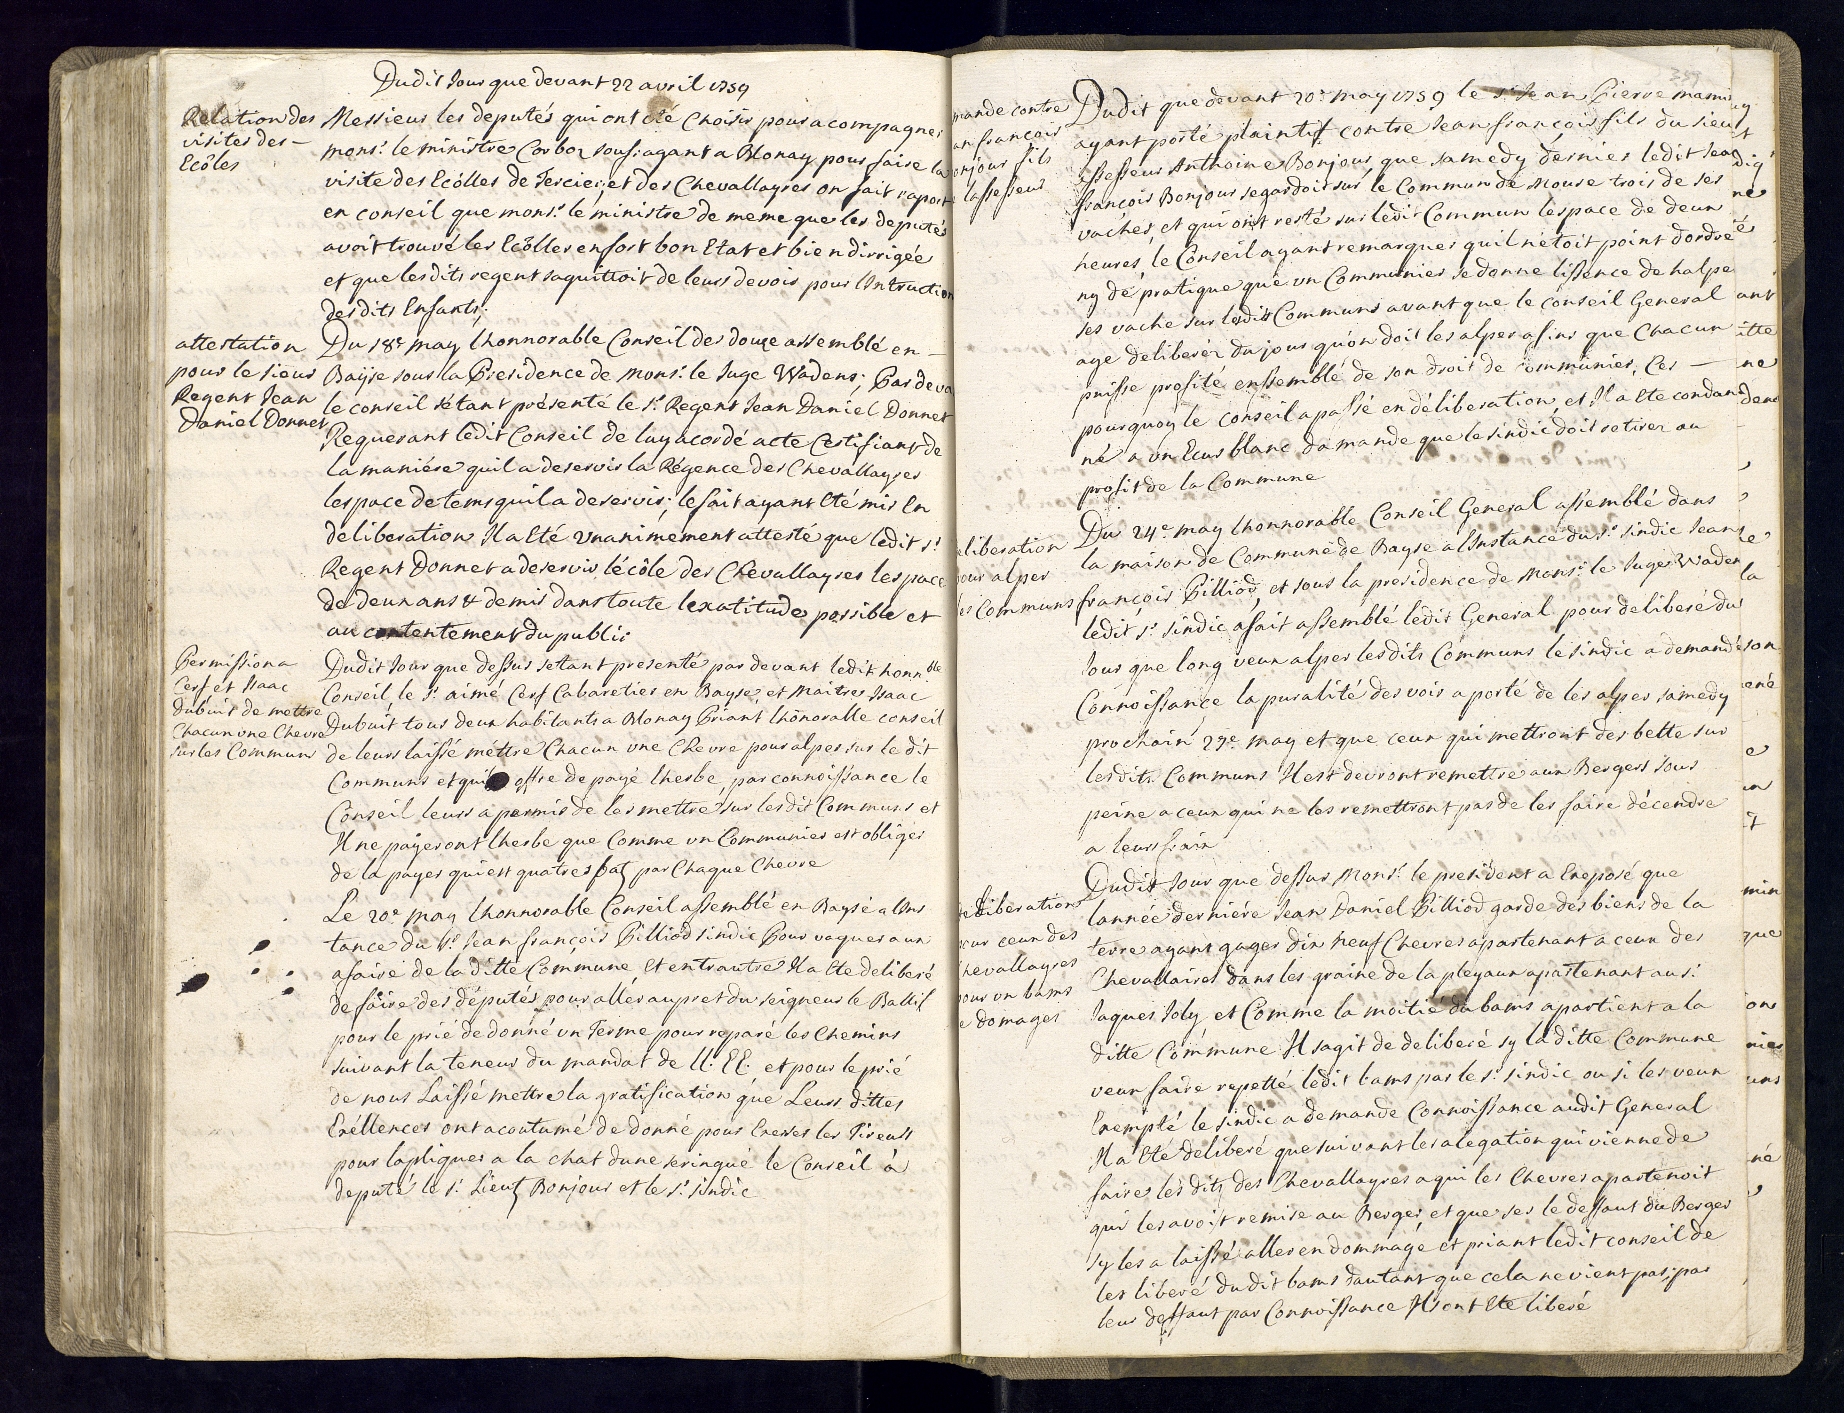 Dudit Jour que devant 22 avril 1759
Relation des
visites des
Ecôles
Messieur les deputés qui ont été Choisis pour acompagner
monsr. le ministre Corboz soufragant a Blonay pour faire la
visite des Ecôlles de Tercier, et des Chevallayres on fait raport
en conseil que monsr. le ministre de meme que les deputés
avoit trouvé les Ecôlles en fort bon Etat et bien dirrigée
et que lesdits regent saquittoit de leurs devoir pour lIntruction
desdits Enfants;
attestation
pour le sieur
Regent Jean
Daniel Donnet
Du 18e may lhonnorable Conseil des douze assemblé en
Bayse sous la Presidence de monsr. le Juge Wadens; Par deva
le conseil sétant présenté le sr. Regent Jean Daniel Donnet
Requerant ledit Conseil de luy acordé acte Certifiant de
la maniére quil a deservir la Régence des Chevallayres
lespace de tems quil a deservir; le fait ayant Eté mis En
deliberation Il a Eté vnanimément attesté que ledit sr.
Regent Donnet a deservir lécôle des Chevallayres lespace
de deux ans & demis dans toute lexatitude possible et
au contentement du public
Permission a
Cerf et Isaac
dubuit de mettre
Chacun vne Chevre
sur les Commun
Dudit Jour que dessus setant presenté par devant ledit honnble
Conseil, le sr. aimé Cerf Cabaretier en Bayse, et Maitres Isaac
Dubuit tous deux habitants a Blonay Priant lhonoralle conseil
de leurs laissé méttre Chacun vne Chevre pour alper sur le dit
Communs et quil offre de payé lherbe, par connoissance le
Conseil leurs a permis de les mettre sur lesdit Communs et
Il ne payeront lherbe que Comme vn Communier est obliger
de la payer qui est quatres batz par Chaque Chevre
Le 20e may lhonnorable Conseil assemblé en Baysé a lIns
tance du sr. Jean françois Pilliod sindic Pour vaquer a un
afaire de la ditte Commune, Et entrautre Il a Ete deliberé
de faire des députés pour allér aupret du seigneur le Ballif
pour le prié de donné vn Terme pour reparé les Chemins
suivant la teneur du mandat de LL. EE. et pour le prié
de nous Laissé mettre la gratification que Leurs dittes
Exéllences ont acoutumé de donné pour Exerser les Tireurs
pour lapliquer a la chat dune seringue le Conseil à
deputé le sr. Lieutz Bonjour et le sr. sindic
359
mande contre
an francois
onjour fils
lassesseur
Dudit que devant 20e. may 1759 le sr Jean Pierre mamin
ayant porté plaintif contre Jean françois fils du sieur
assesseur Anthoine Bonjour, que samedy dernier ledit Jean
françois Bonjour segardoit sur le Commun de Mouse trois de ses
vaches, et qui ont resté sur ledit Commun lespace de deux
heures, le Conseil ayant remarquer quil nétoit point dordre
ny de pratique que vn Communier se donne lissence de halpe
ses vache sur lesdits Communs avant que le conseil General
aye deliberér du jour qu'on doit les alper afins que Chacun
puisse profité enssemblé de son droit de communier, Ces
pourquoy le conseil a passé en déliberation, et Il a Ete condam
né a vn Ecus blanc damande que le sindic doit retirer au
profit de la Commune
eliberation
pour alper
es Communs
Du 24e may lhonnorable Conseil General assemblé dans
la maison de Commune de Bayse a lInstance du sr. sindic Jean
françois Pilliod, et sous la presidence de Monsr. le Juges Waden
ledit sr. sindic a fait assemblé ledit General pour deliberé du
Jour que long veux alper lesdits Communs le sindic a demandé
Connoissance la puralité des voix a porté de les alper samedy
prochain 29e may et que ceux qui mettront des bette sur
lesdits Communs Il est devront remettre aux Bergers sous
peine a ceux qui ne les remettront pas de les faire décendre
a leurs frais
deliberation
pour ceux des
Chevallayres
pour vn bams
e domages
Dudit Jour que dessus Monsr. le president a Exposé que
lannée derniére Jean Daniel Pilliod garde des biens de la
terre ayant gager dix neuf Chevres apartenant a ceux des
Chevallaires dans les graine de la pleyaux apartenant au sr.
Jaques Joly et Comme la moitié du bams apartient a la
ditte Commune Il sagit de deliberé sy la ditte Commune
veux faire repetté ledit bams par le sr. sindic ou si les veux
Exempté le sindic a demande Connoissance audit General
Il a Eté deliberé que suivant les alegation qui vienne de
faire les ditz des Chevallayres a qui les Chevres apartenoit
quis les avoit remise au Berger, et que ses le deffaut du Berger
sy les a laissé aller en dommage et priant ledit conseil de
les liberé dudit bams dautant que cela ne vient pas, par
leur deffaut par Connoissance Il sont Ete liberé